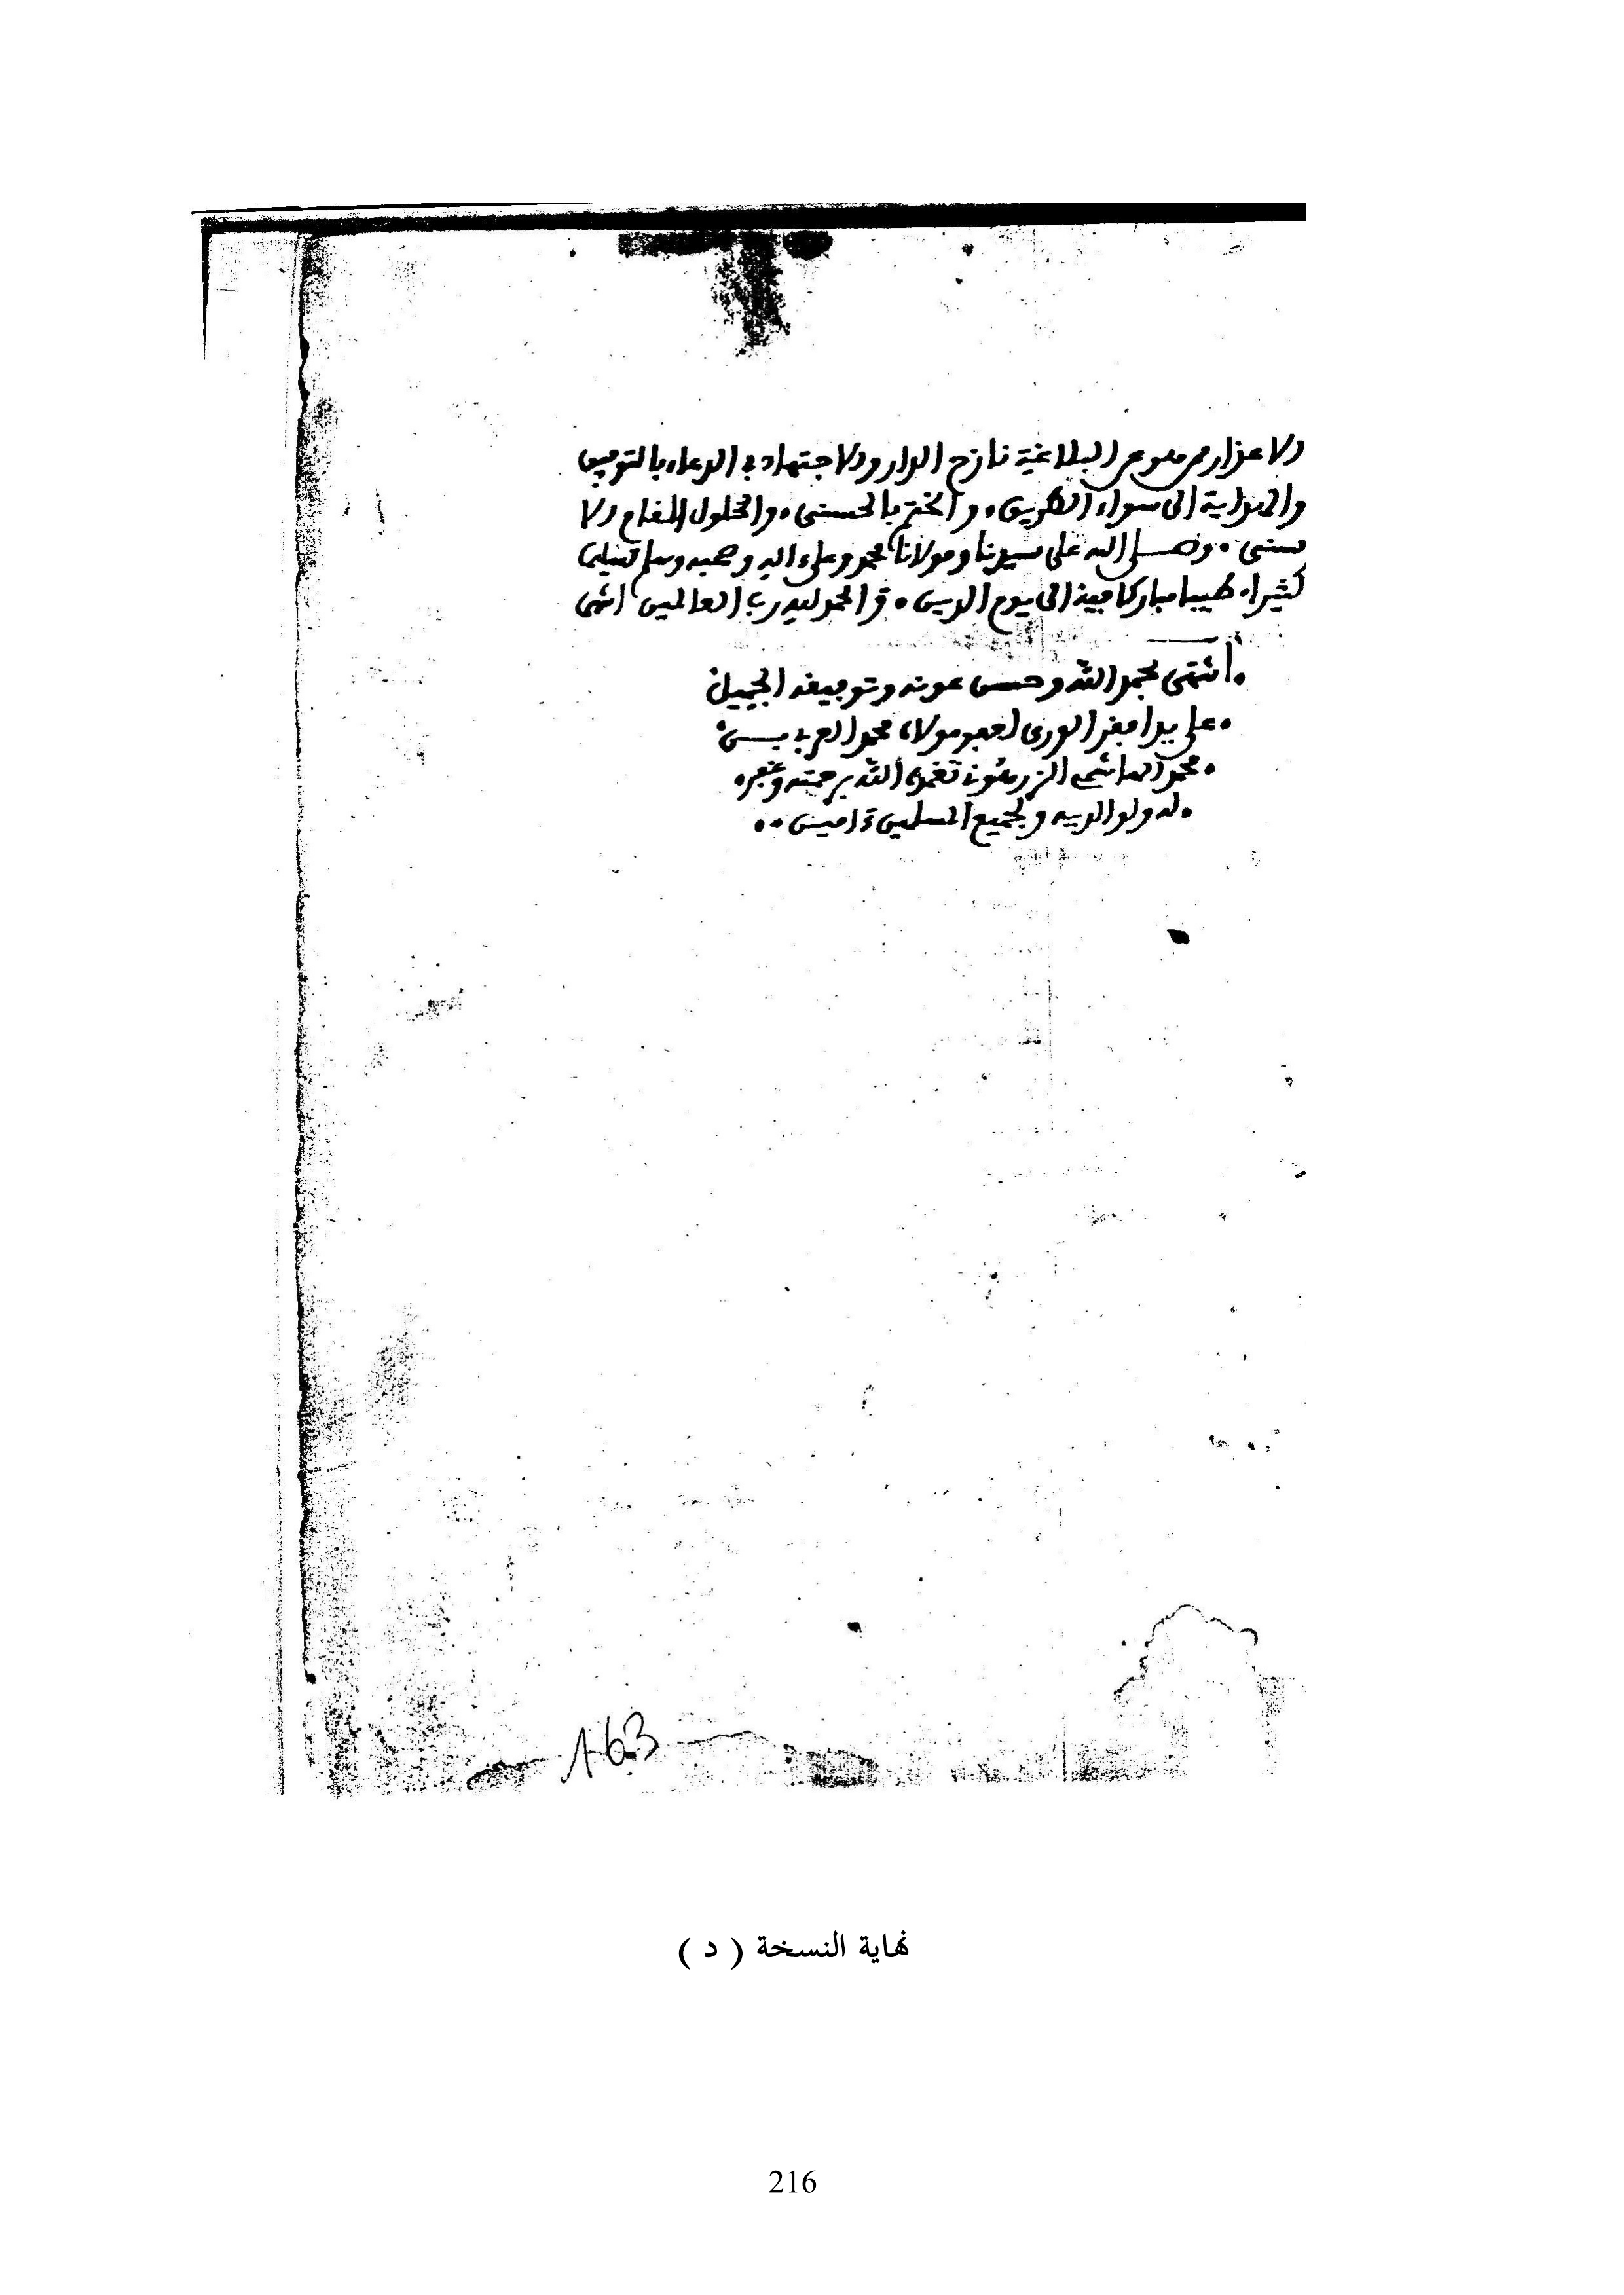 والاجتهاد في الدعاء بالتوفيق
والهداية إلى سواء الطريق. والختم بالحسنى. والحلول المقام الا
سنى. وصلى الله على سيدنا ومولانا محمد وعلى ءاله وصحبه وسلم تسليما
كثيرا. طيبا مباركا فيه إلى يوم الدين. والحمد لله رب العالمين انتهى
انتهى بحمد الله وحسن عونه وتوفيقه الجميل
على يد أفقر الورى لعفو مولاه محمد العربي بن
محمد الهاشمي الزرهوني تغمده الله برحمته
له ولوالديه ولجميع المسلمين ءامين
163
نهاية النسخة ( د )
216